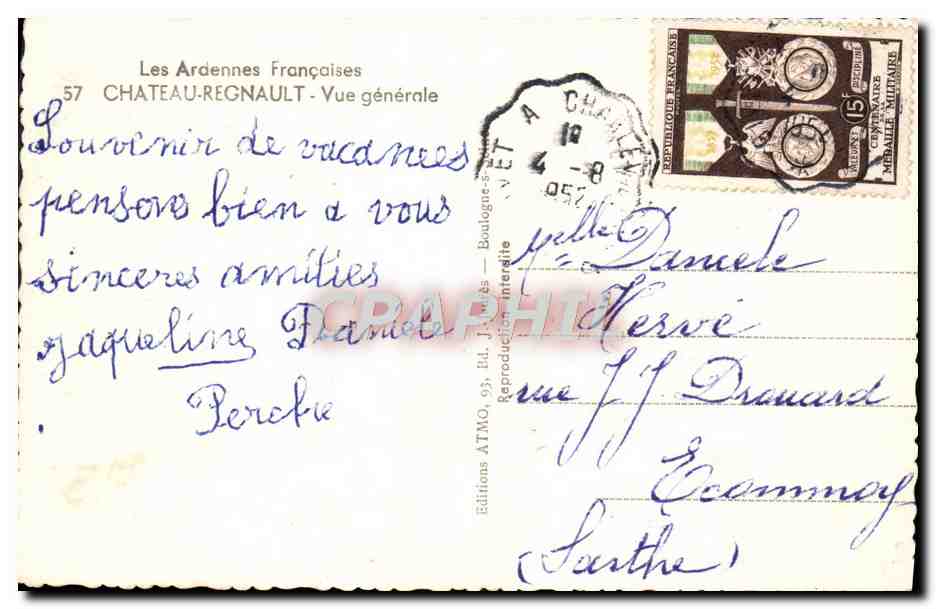 Les Ardennes Françaises
57 CHATEAU-REGNAULT - Vue générale
Souvenir de vacances
pensons bien a vous
sinceres amitiés
Jaqueline Daniele
Editions ATMO, 93, Bd. J. Jaurès — Boulogne-s-
Reproduction interdite
VET A CHARLEV
18
4 -8
195
REPUBLIQUE FRANÇAISE
1852
1952
VALEUR ET DISCIPLINE
15F
CENTENAIRE
DE LA
MÉDAILLE MILITAIRE
Melle Daniele
Hervé
rue J J Drouard
Ecommoy
(Sarthe)
CRAPHI